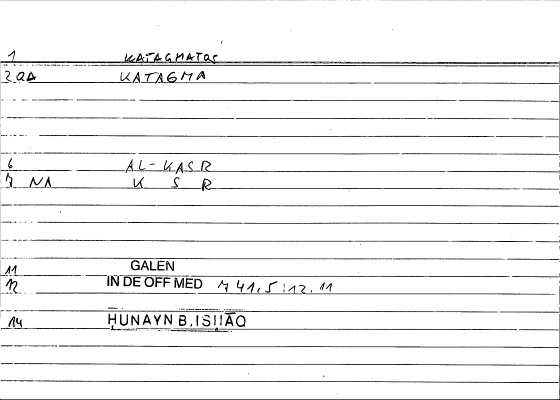 1 KATAGMATOS
2 QA KATAGMA
6 AL-KASR
7 NA K S R
11 GALEN
12 IN DE OFF MED 741,5:12.11
14 HUNAYN B. ISHĀQ